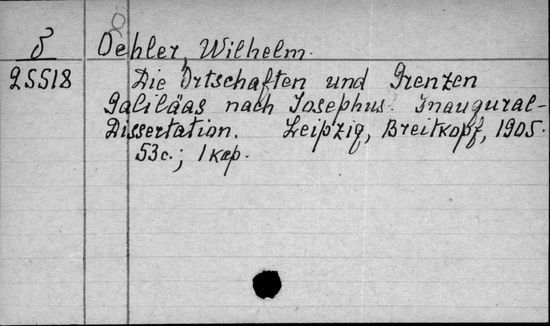 δ Oehler, Wilhelm.
25518 Die Ortschaften und Grenzen
Galiläas nach Josephus. Inaugural-
Dissertation. Leipzig, Breitkopf, 1905.
53c.; 1 кар.